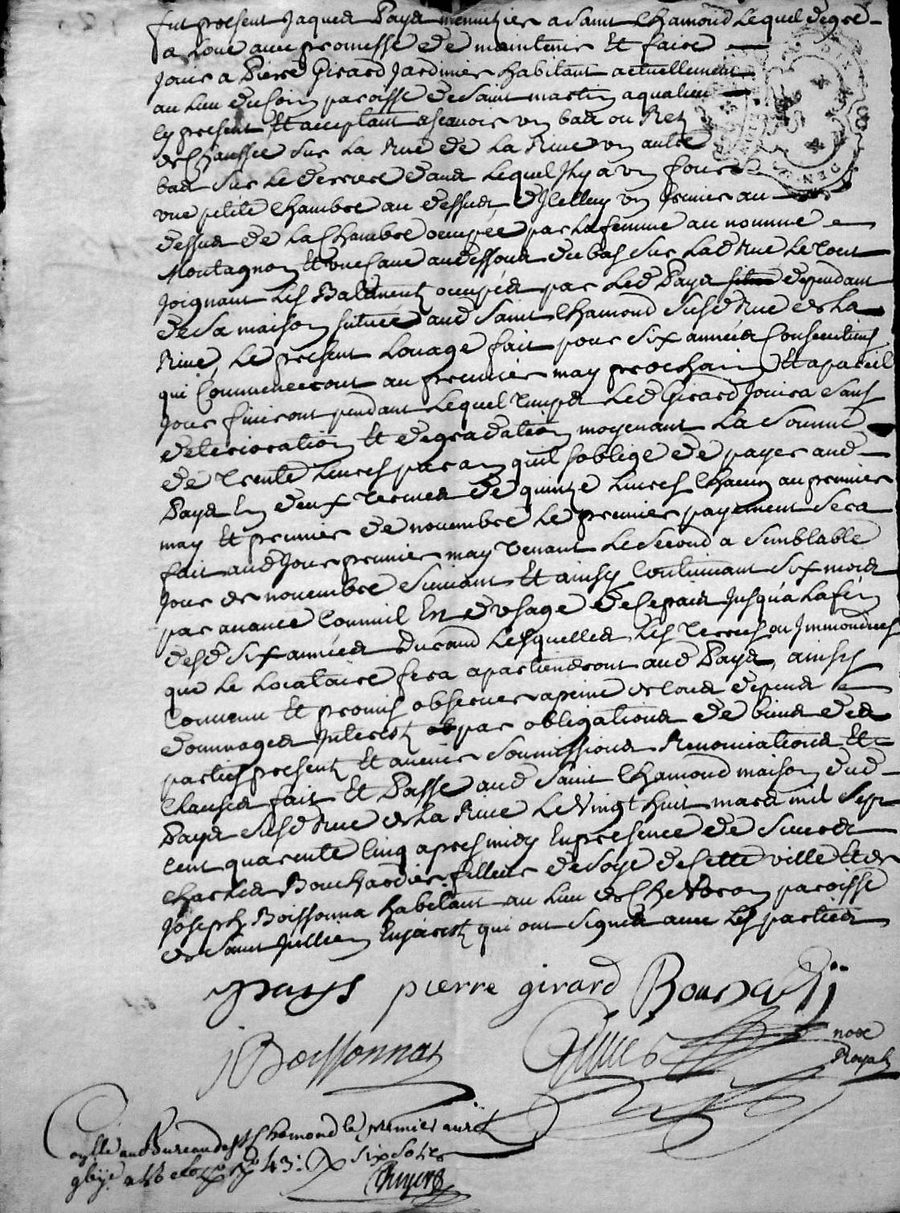 fut present Jaques Pays menuizier a Saint Chamond Lequel de gré
a Loué avec promesse de maintenir Et faire
Jouir a Pierre Girard Jardinier habitant actuellement
au Lieu du paroisse de Saint martin aqualieu
Icy present Et acceptant Scavoir un bas ou Rez
de Chaussée Sur La Rue de La Rive un autre
bas Sur Le derriere dans Lequel Ihy a un four
une petite Chambre au dessus d'Icelluy un Grenier au
dessus de La Chambre ocupée par La femme au nommé
Montagnon Et une Cave audessous du bas Sur Lad Rue Le tout
Joignant Les Batiments ocupés par Led Pays dependant
de Sa maison Située aud Saint Chamond Susd Rue de La
Rive, Le present Louage fait pour Six années Consecutives
qui Commenceront au premier may prochain Et a pareil
Jour finiront pendant Lequel temps Led Girard Jouira Sans
deterioration Et degradation moyenant La Somme
de trente Livres par an quil Soblige de payer aud
Pays En deux termes de quinze Livres Chacun au premier
may Et premier de novembre Le premier payement Sera
fait aud Jour premier may venant Le Second a Semblable
Jour de novembre Suivant Et ainsy Continuant Six mois
par avance Comme Il Est d'usage Jusqu'a La fin
desd Six années Durand Lesquelles Les terres ou Immondices
que Le Locataire fera apartiendront aud Pays, ainsy
Convenu Et promis observer a peine de tous depens
dommages Interest par obligations de biens des
parties presents Et avenir Soumissions Renonciations Et
Clauses fait Et Passé aud Saint Chamond maison dud
Pays Susd Rue de La Rive Le Vingt huit mars mil Sept
Cent quarente Cinq apres midy En presence de Sieurs
Charles Bouchardier filleur de Soye de Cette ville Et de
Joseph Boissonna habitant au Lieu de paroisse
de Saint Jullien En Jarest qui ont Signes avec Les parties
Pays pierre girard
JBoissonnas nore
Royal
au Bureau de St Chamond le premier avril
six sols